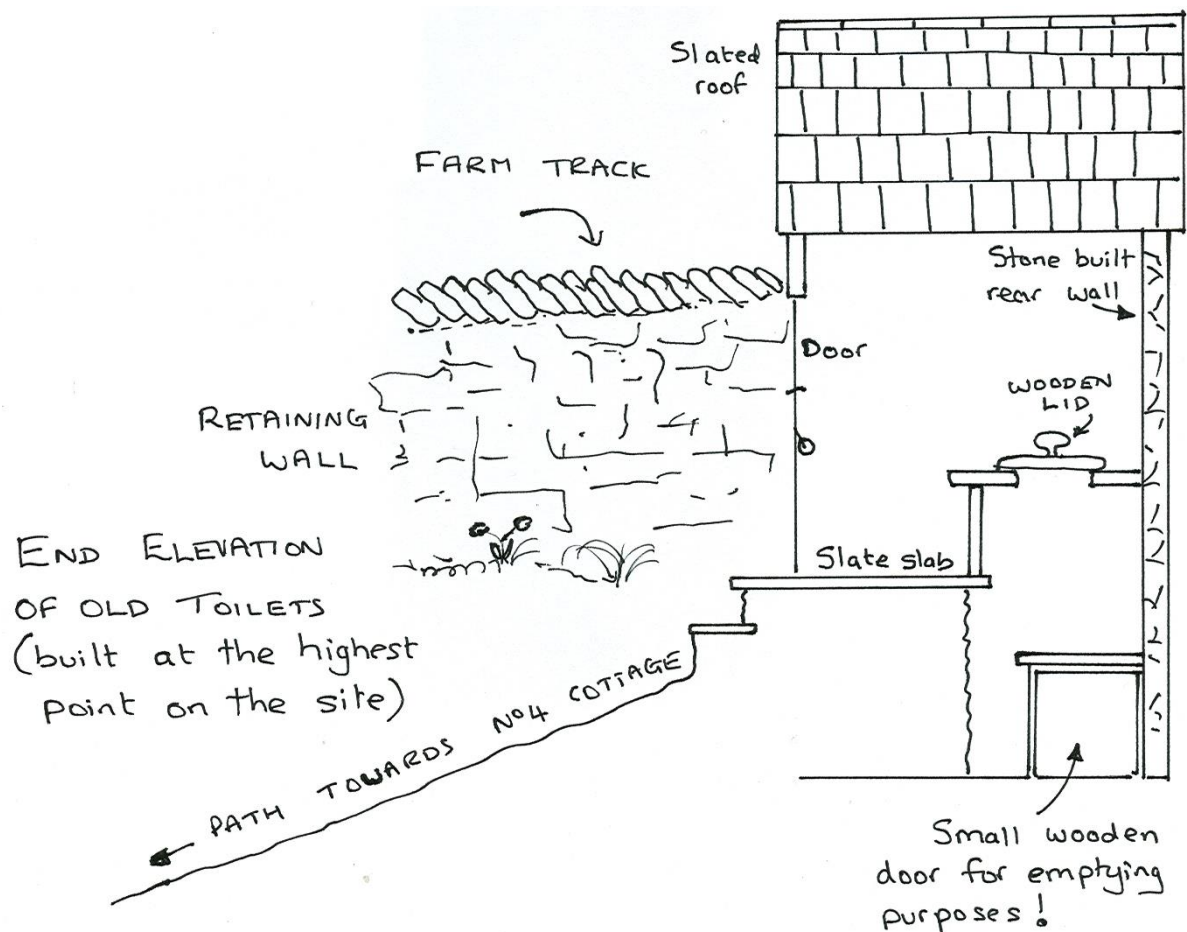 Slated
roof
FARM TRACK
Stone built
rear wall
Door
WOODEN
LID
RETAINING
WALL
Slate slab
END ELEVATION
OF OLD TOILETS
(built at the highest
point on the site)
PATH TOWARDS Nº4 COTTAGE
Small wooden
door for emptying
purposes!